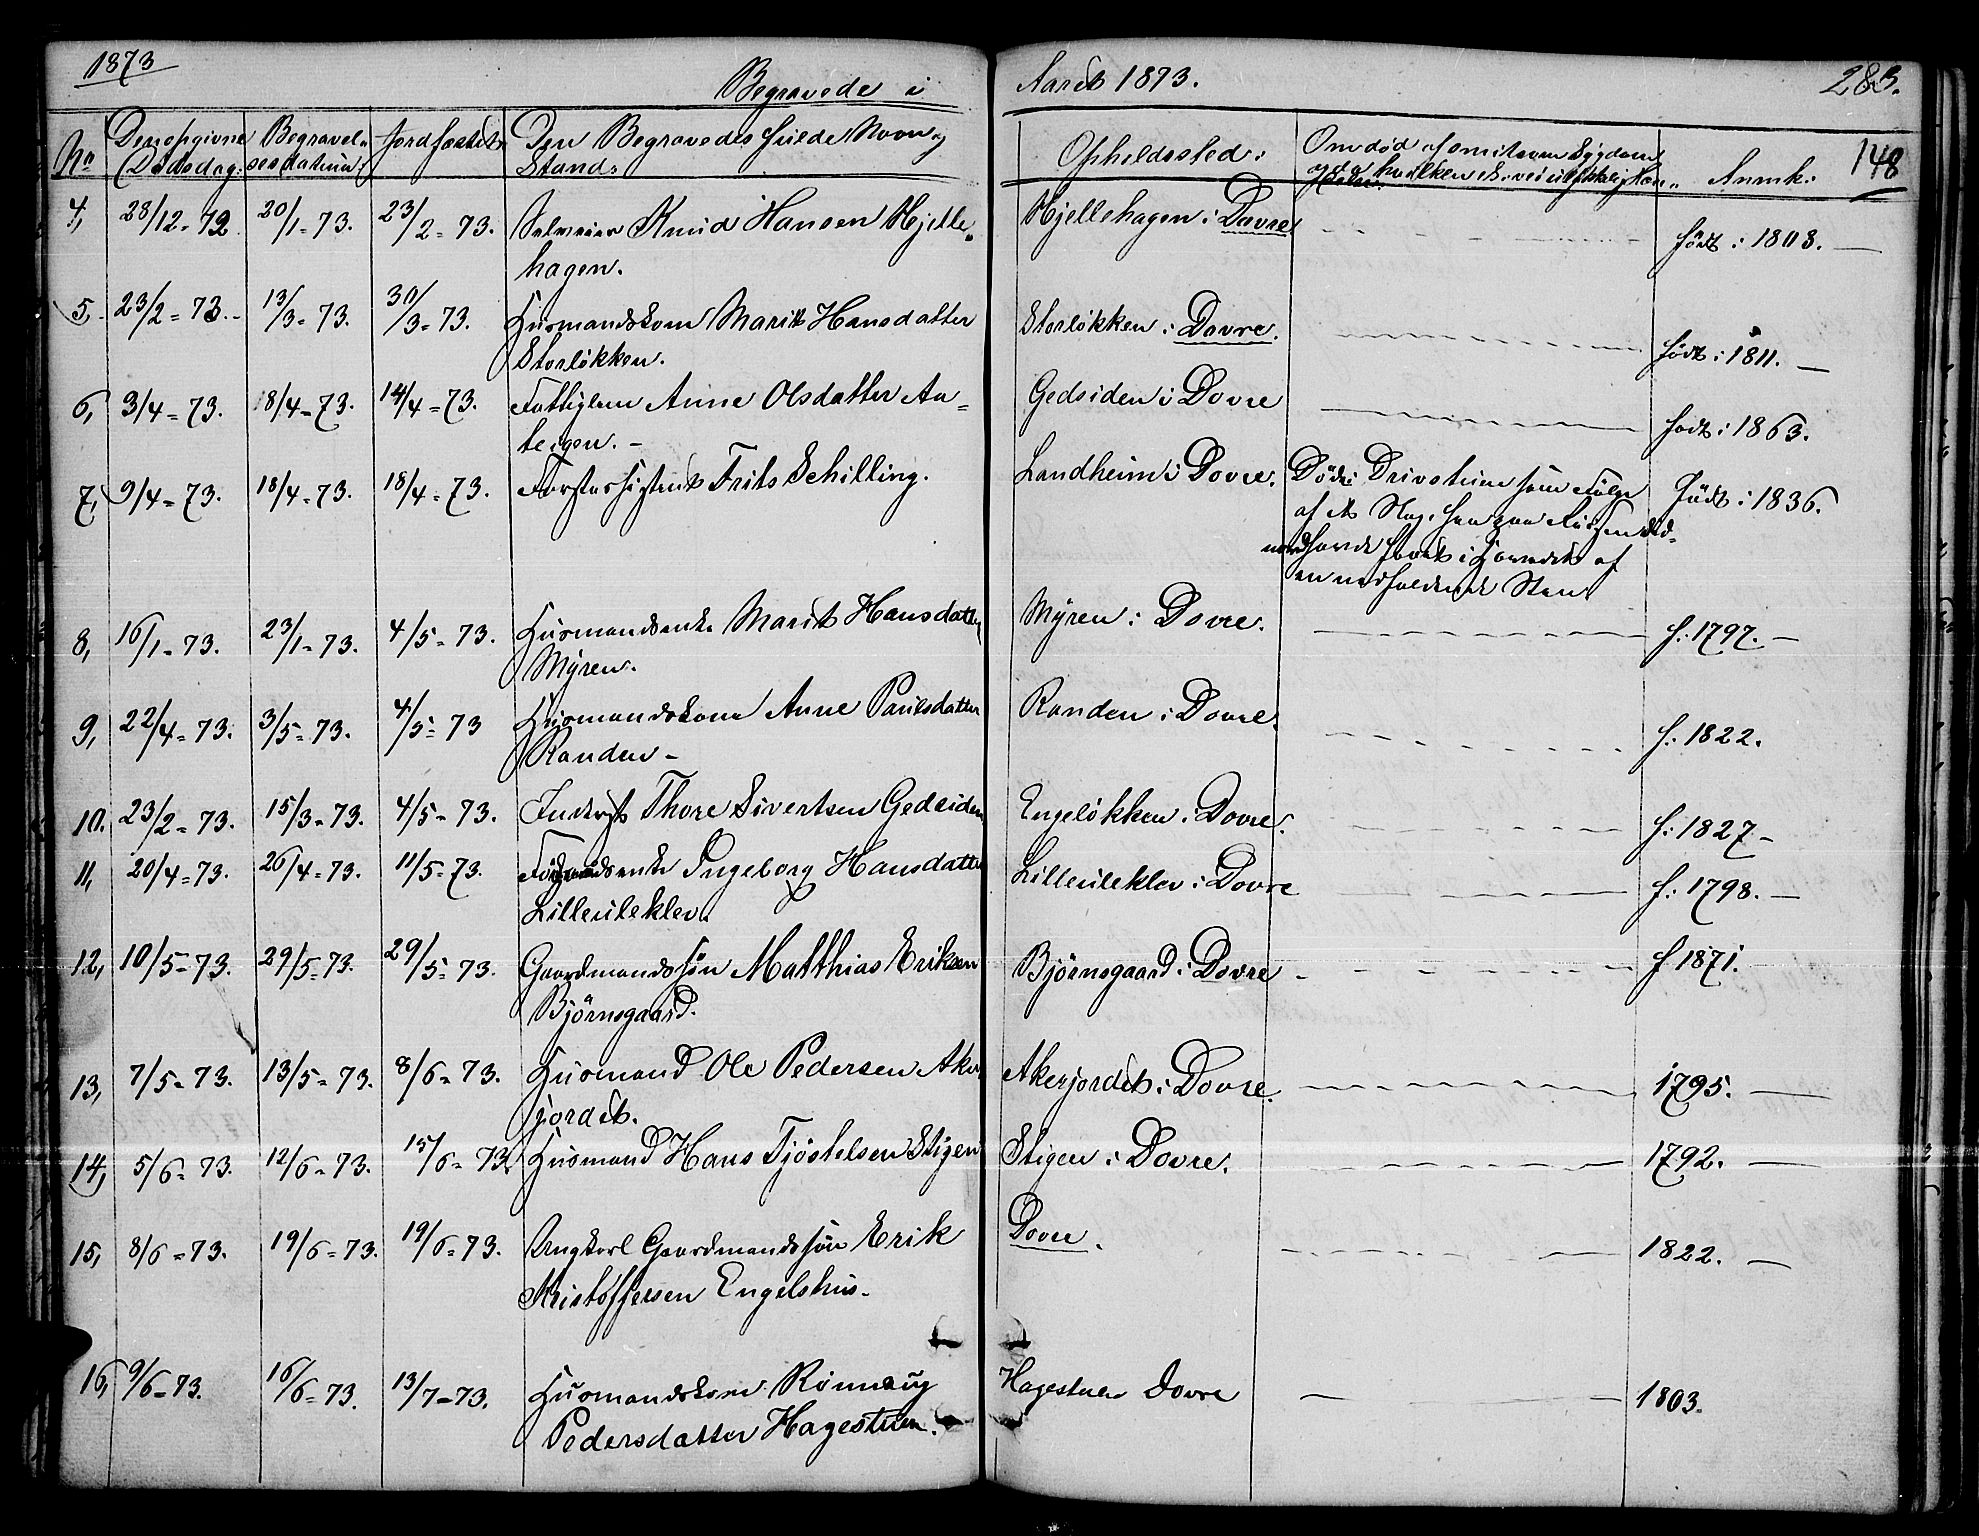 1873
Begravede i Aaret 1873.
283.
148
No Den opgivne Dødsdag: Begravelsesdatum: Jordfæstet Den Begravedes fulde Navn og Stand: Opholdssted: Anmk:
4, 28/12-72 20/1-73. 23/2-73. Selveier Knud Hansen Hjelle-
hagen. Hjellehagen i Dovre født: 1803.
5, 23/2-73. 13/3-73. 30/3-73. Husmandskone Marit Hansdatter
Storløkken. Storløkken i Dovre. født: 1811.
6, 3/4-73. 18/4-73. 14/4-73. Fattiglem Anne Olsdatter
Gedsiden i Dovre født: 1863.
7, 9/4-73. 18/4-73. 18/4-73. Forstassistent Frits Schilling. Landheim i Dovre. Født: 1836.
Død i Drivstuen som Følge
af et Slag, han paa
havde faaet i Hovedet af
en nedfaldende Sten
8, 16/1-73. 23/1-73. 4/5-73. Husmandsenke Marit Hansdatter
Myren. Myren i Dovre. f: 1797.
9, 22/4-73. 3/5-73. 4/5-73 Husmandskone Anne Paulsdatter
Randen Randen i Dovre. f: 1822.
10. 23/2-73. 15/3-73. 4/5-73. Inderst Thore Sivertsen Gedsiden Engeløkken i Dovre. f: 1827
11, 20/4-73. 26/4-73. 11/5-73. Ingeborg Hansdatter
Lilleuleklev. Lilleuleklev i Dovre f: 1798.
12, 10/5-73. 29/5-73. 29/5-73. Gaardmandssøn Matthias Eriksen
Bjørnsgaard. Bjørnsgaard i Dovre f 1871.
13, 7/5-73. 13/5-73. 8/6-73. Husmand Ole Pedersen Aker
jordet. Akerjordet i Dovre. 1795.
14, 5/6-73. 12/6-73. 15/6-73. Husmand Hans Tjøstelsen Stigen Stigen i Dovre. 1792.
15, 8/6-73. 19/6-73. 19/6-73. Ungkarl Gaardmandssøn Erik
Kristoffersen Engelshus. Dovre. 1822.
16, 9/6-73. 16/6-73. 13/7-73. Husmandskone Rønnaug
Pedersdatter Hagestuen. Hagestuen Dovre 1803.